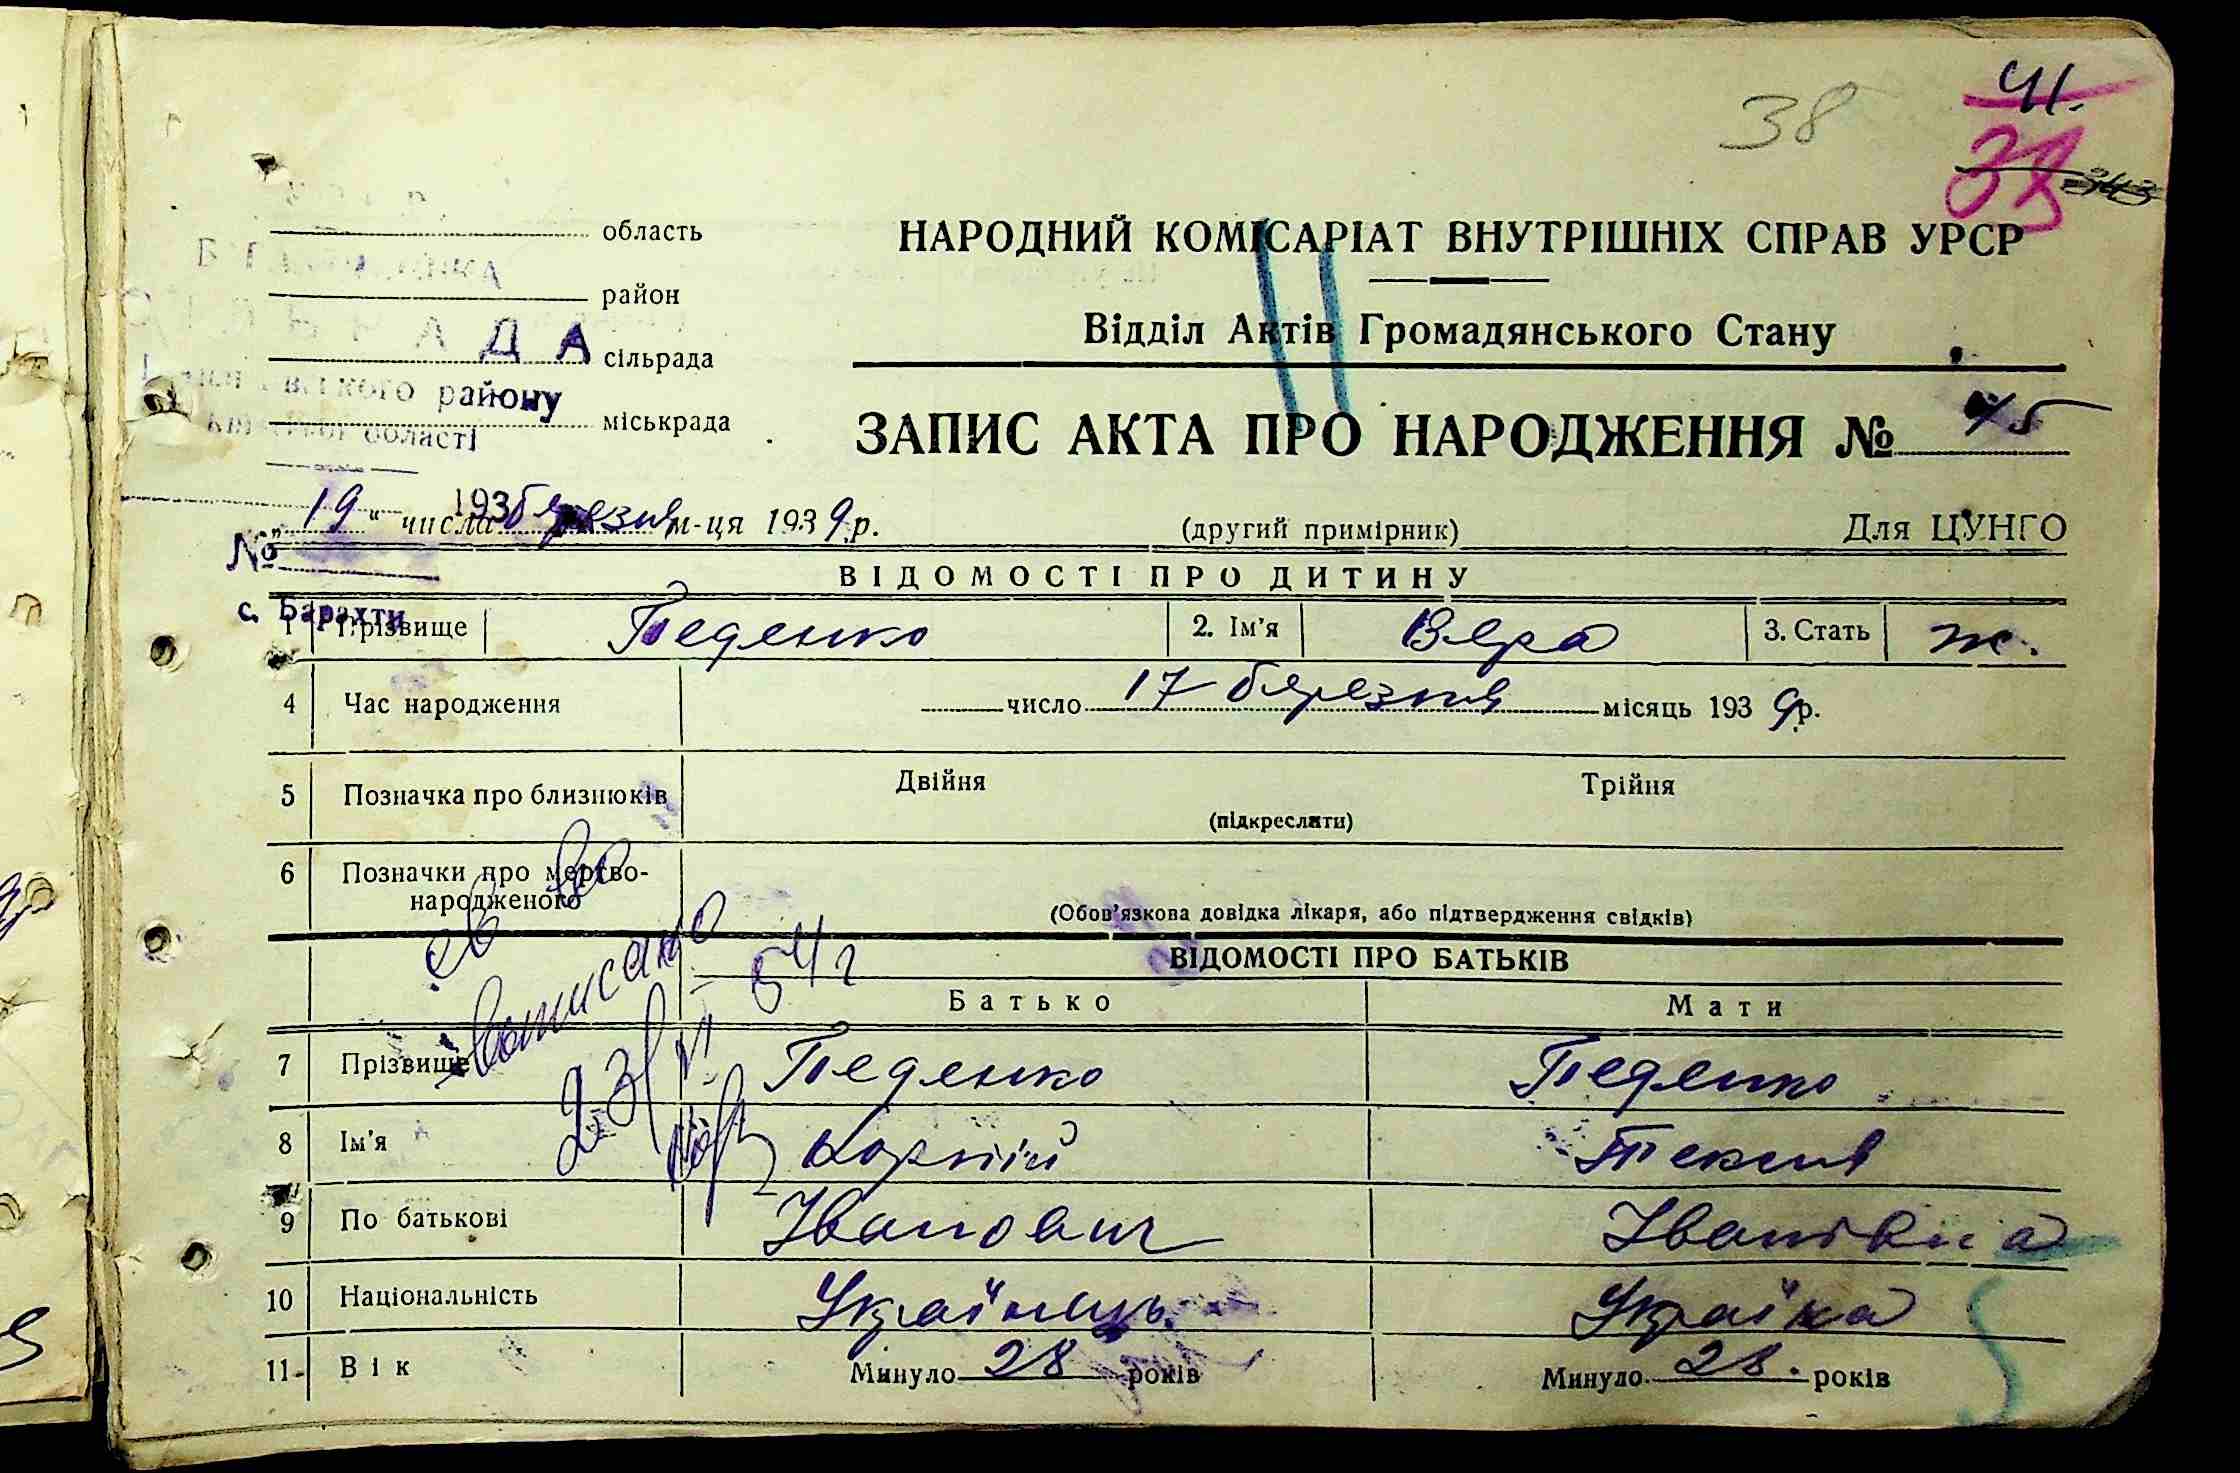 41.
38
38
343
область
район
сільрада
міськрада
АДА
району
області
193
№
с. Барахти
НАРОДНИЙ КОМІСАРІАТ ВНУТРІШНІХ СПРАВ УРСР
Відділ Актів Громадянського Стану
ЗАПИС АКТА ПРО НАРОДЖЕННЯ № 45
„19“ числа березня м-ця 1939 р. (другий примірник) Для ЦУНГО
ВІДОМОСТІ ПРО ДИТИНУ
1 Прізвище Педенко 2. Ім'я Вера 3. Стать ж.
4 Час народження число 17 березня місяць 1939 р.
5 Позначка про близнюків Двійня Трійня
(підкреслити)
6 Позначки про мертво-
народженого
(Обов'язкова довідка лікаря, або підтвердження свідків)
св во
выписано
23/VI 54 г
ВІДОМОСТІ ПРО БАТЬКІВ
Батько Мати
7 Прізвище Педенко Педенко
8 Ім'я Корній Текля
9 По батькові Іванович Іванівна
10 Національність Українець Українка
11 Вік Минуло 28 років Минуло 28. років